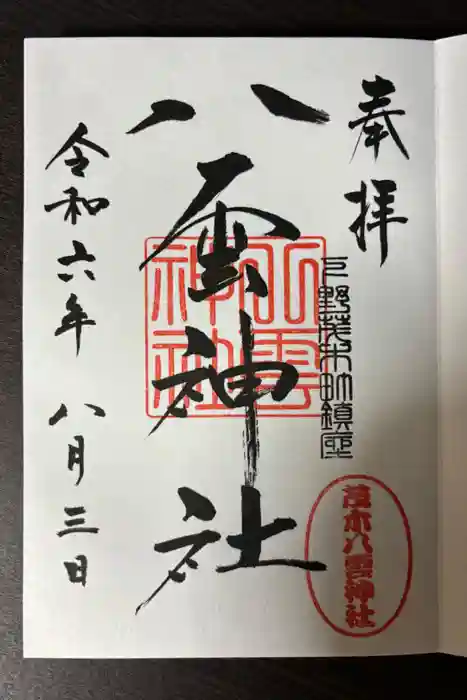 奉拝
下野茂木町鎮座
茂木八雲神社
八雲神社
八雲
神社
令和六年 八月三日